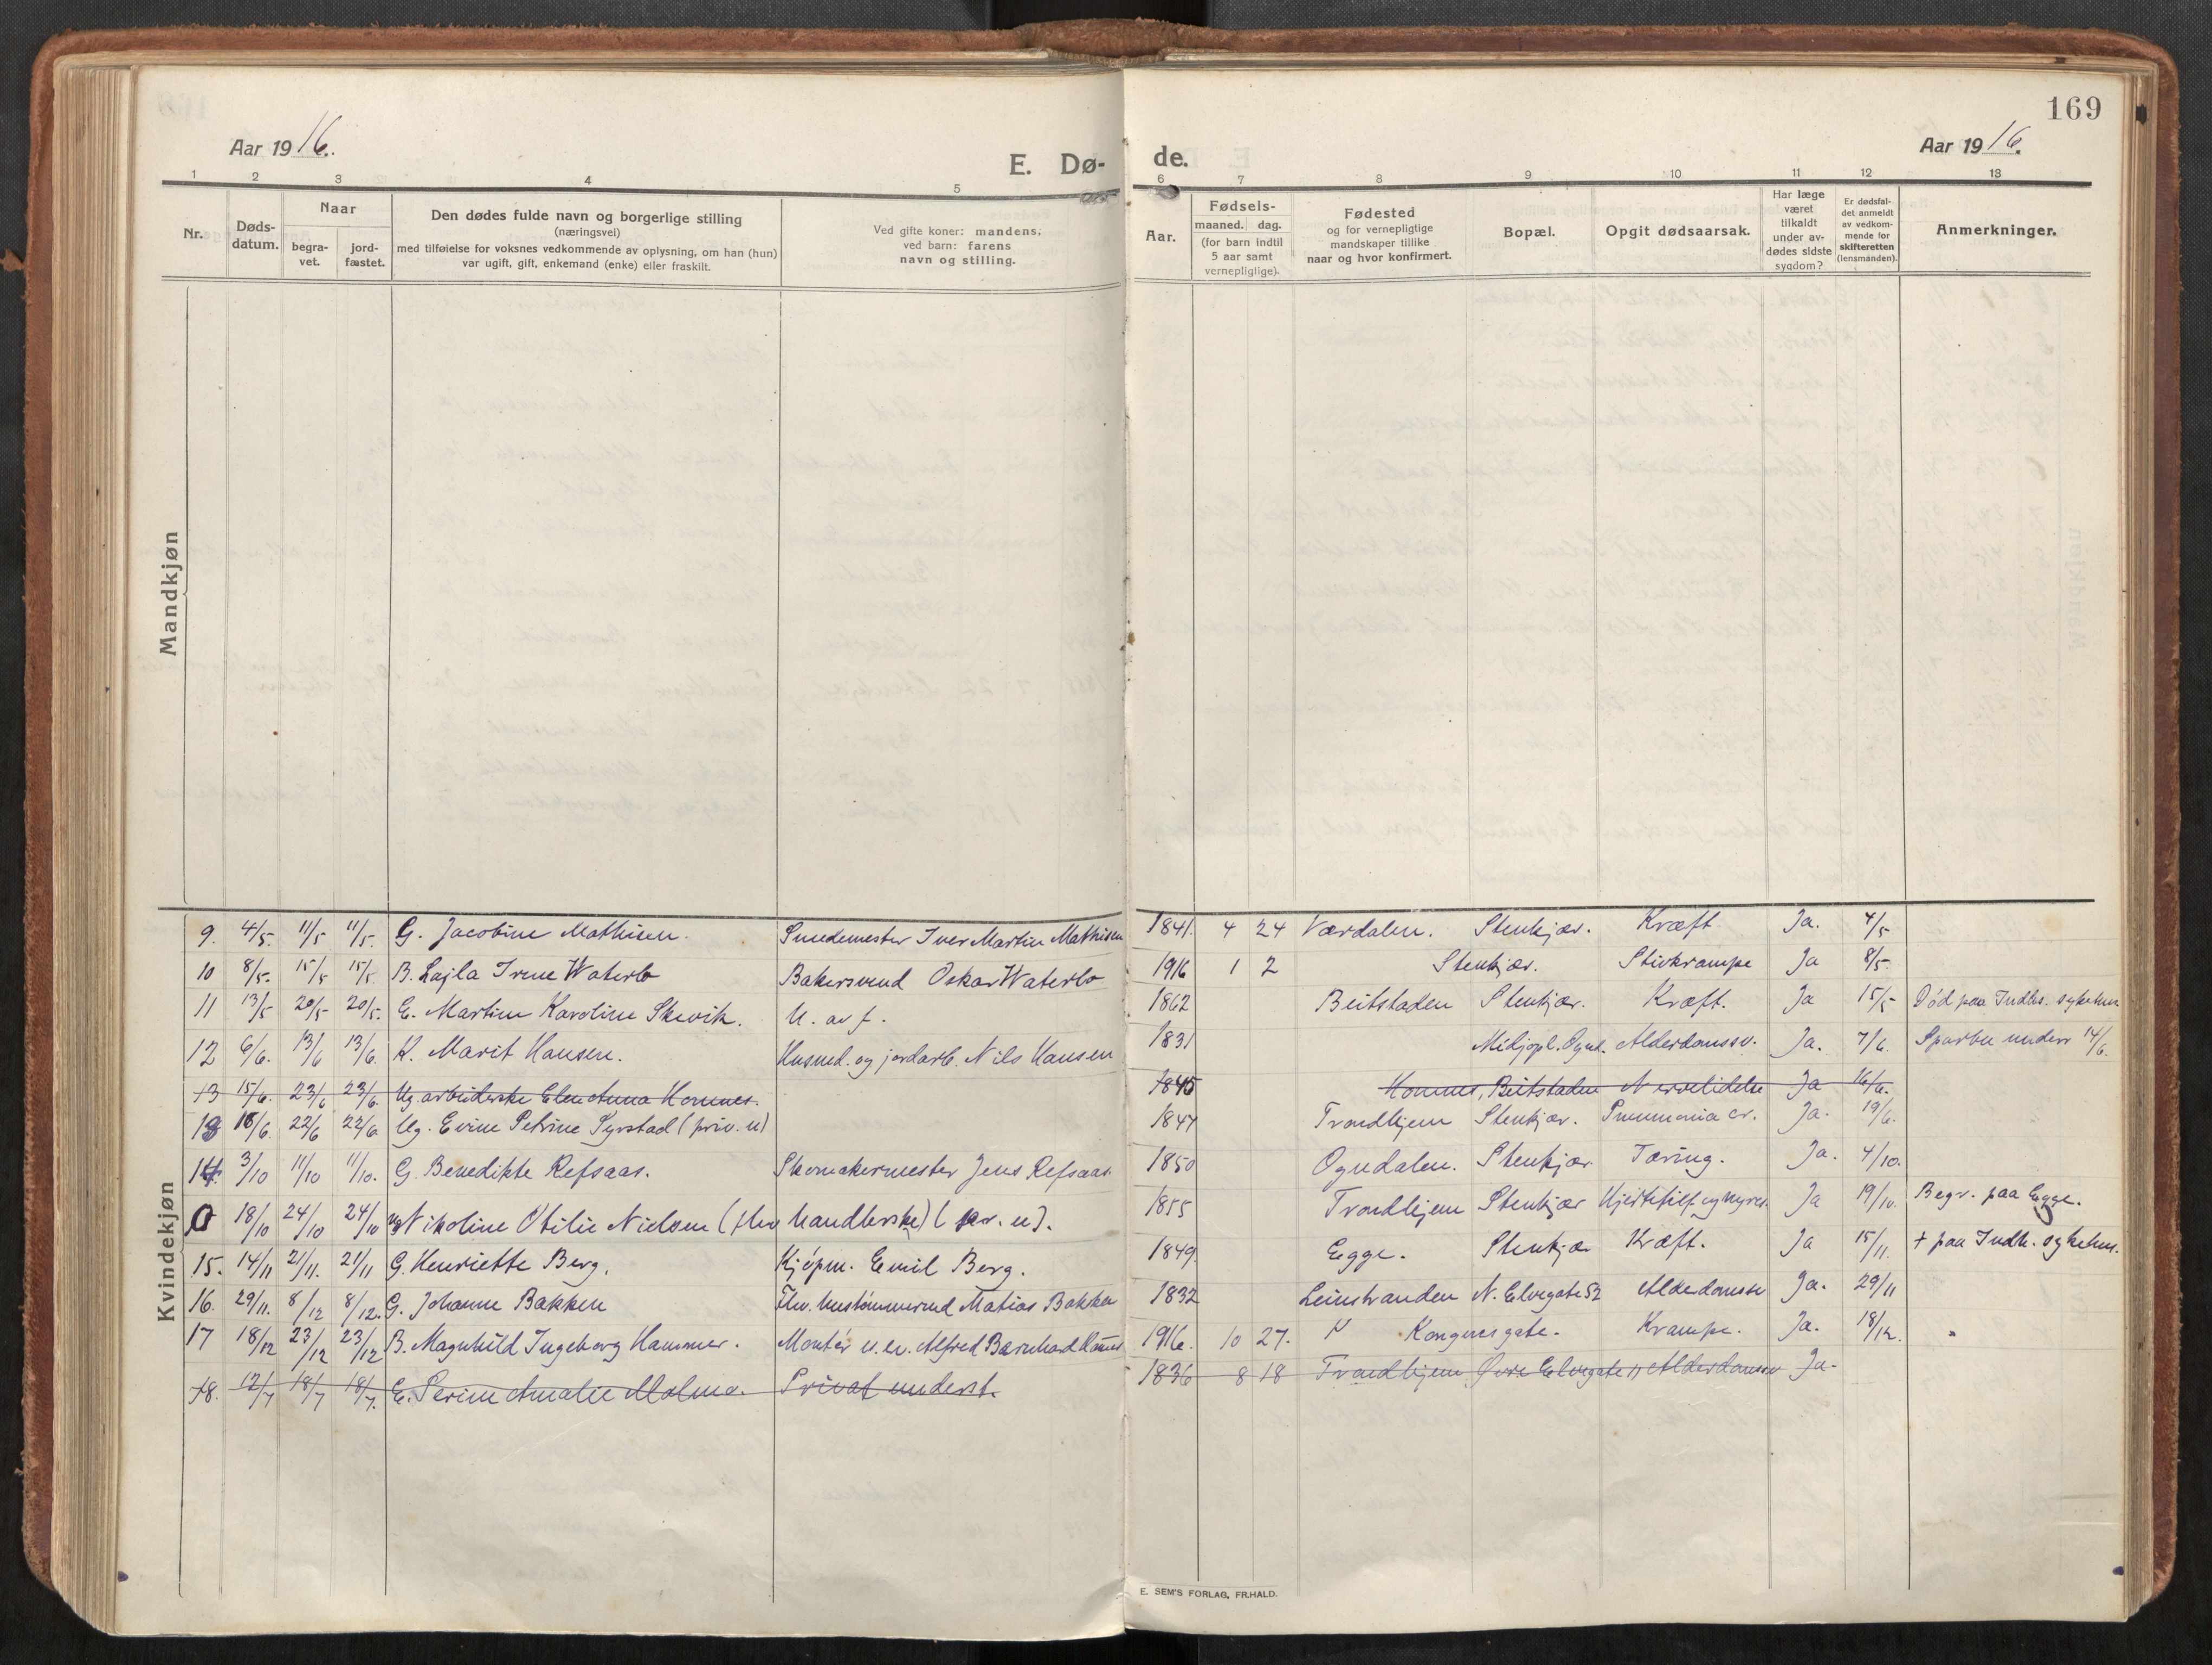 169
Aar 1916.
Aar 1916.
E. Dø- de.
1 2 3 4 5 6 7 8 9 10 11 12 13
Nr.
Døds-
datum.
Naar
begra-
vet.
jord-
fæstet.
Den dødes fulde navn og borgerlige stilling
(næringsvei)
med tilføielse for voksnes vedkommende av oplysning, om han (hun)
var ugift, gift, enkemand (enke) eller fraskilt.
Ved gifte koner: mandens,
ved barn: farens
navn og stilling.
Aar.
Fødsels-
maaned. dag.
(for barn indtil
5 aar samt
vernepliglige).
Fødested
og for vernepligtige
mandskaper tillike
naar og hvor konfirmert.
Bopæl.
Opgit dødsaarsak.
Har læge
været
tilkaldt
under av-
dødes sidste
sygdom?
Er dødsfal-
det anmeldt
av vedkom-
mende for
skifteretten
(lensmanden).
Anmerkninger.
Mandkjøn
Kvindekjøn
9. 4/5. 11/5 11/5. G. Jacobine Mathisen. Smedemester Iver Martin Mathisen 1841. 4 24 Værdalen. Stenkjær. Kræft Ja. 4/5
10 8/5. 15/5 15/5 B. Lajla Irene Waterlo Bakersvend Oskar Waterlo 1916 1 2 Stenkjær. Stivkrampe Ja 8/5.
11 13/5 20/5 20/5. E. Martine Karoline Skevik. U. av f. 1862 Beitstaden Stenkjær. Kræft. Ja 15/5 Død paa Indhs. sykehus
12 6/6. 13/6 13/6 K. Marit Hansen. Husmd. og jordarb. Nils Hansen 1831 Midjopl. Ognd. Alderdomssv. Ja. 7/6. Sparbu underr 14/6.
13 15/6. 23/6 23/6. Ug. arbeiderske Elen Anna Homnes. 1845 Homnes, Beitstaden Nervelidelse Ja 16/6.
13 16/6. 22/6 22/6. Ug. Evine Petrine Syrstad (priv. u) 1847 Trondhjem Stenkjær. Pneumonia cr. Ja. 19/6.
14. 3/10 11/10 11/10. G. Benedikte Refsaas. Skomakermester Jens Refsaas. 1850 Ogndalen. Stenkjær Tæring. Ja. 4/10.
0 18/10 24/10 24/10 ug Nikoline Otilie Nielsen (fhv handlerske) ( . u). 1855 Trondhjem Stenkjær Hjertefeil og nyres. Ja 19/10. Begr. paa Egge.
15. 14/11 21/11. 21/11 G. Henriette Berg. Kjøpm. Emil Berg. 1849. Egge. Stenkjæ Kræft. Ja 15/11. + paa Indh. sykehus.
16. 29/11. 8/12 8/12. G. Johanne Bakken Fhv. hustømmermd Matias Bakken 1832 Leinstranden N. Elvegate 52 Alderdomssv Ja. 29/11
17 18/12 23/12 23/12 B. Magnhild Ingeborg Hammer. Montør v. el. Alfred Bernhard Hammer 1916. 10 27. Kongensgate. Krampe. Ja. 18/12. "
18. 12/7 18/7 18/7. E. Serine Amalie Malmo. Privat underst. 1836 8 18 Trondhjem Øvre Elvegate 11 Alderdomssv Ja.
E. SEM'S FORLAG, FR.HALD.